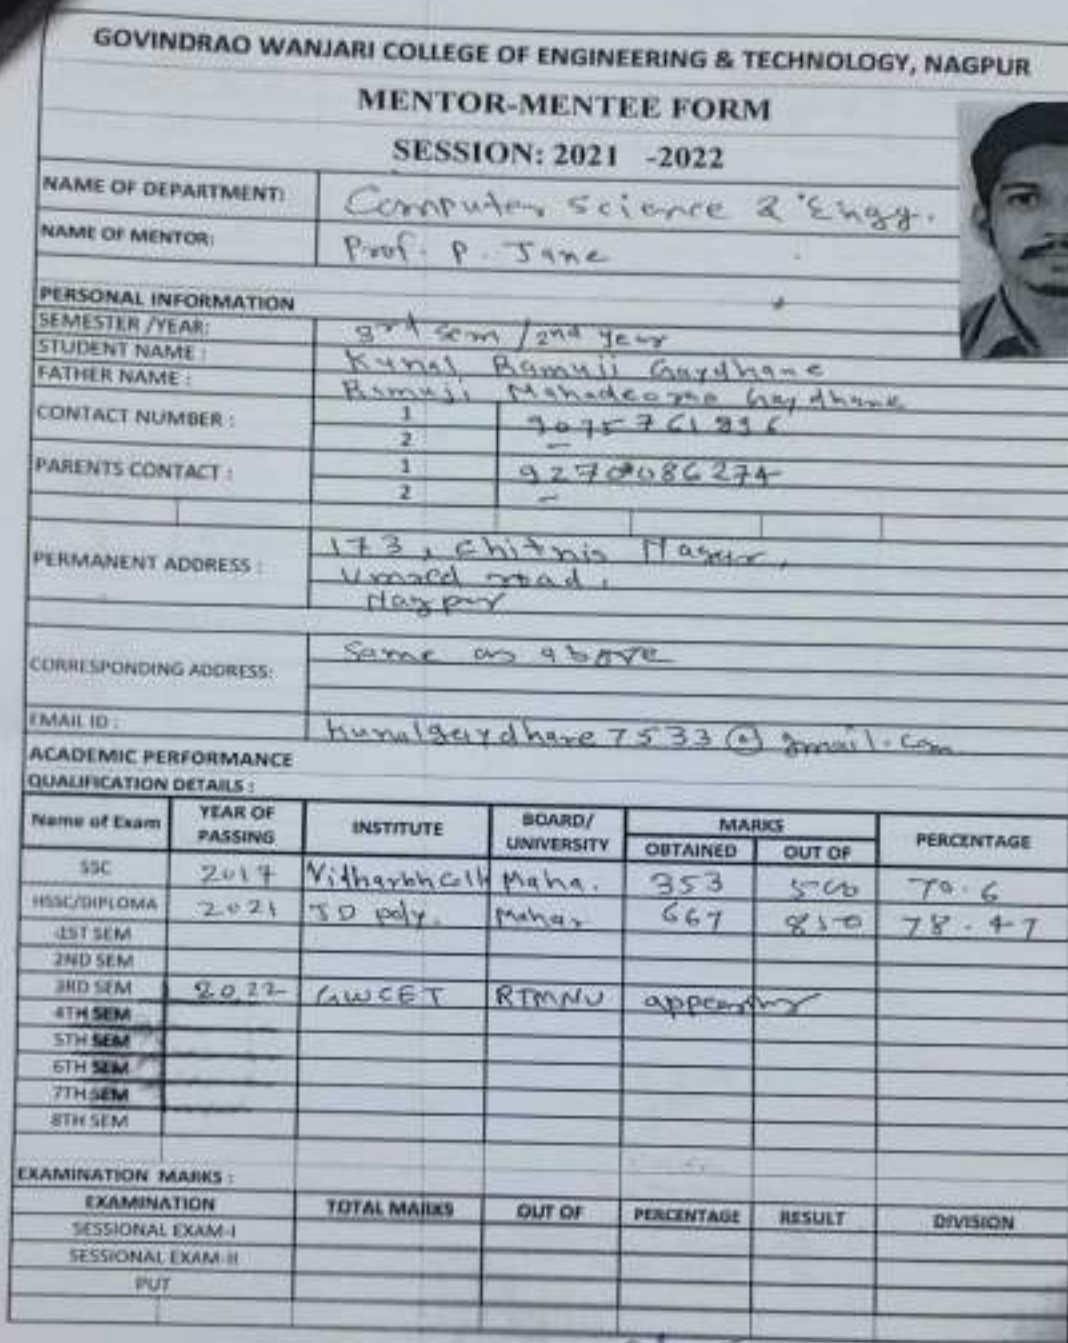 GOVINDRAO WANJARI COLLEGE OF ENGINEERING & TECHNOLOGY, NAGPUR
MENTOR-MENTEE FORM
SESSION: 2021 -2022
NAME OF DEPARTMENT: Computer Science & Engg.
NAME OF MENTOR: Prof. P. Jane
PERSONAL INFORMATION
SEMESTER /YEAR: 3rd sem / 2nd year
STUDENT NAME : Kunal Ramuji Gaydhane
FATHER NAME : Ramuji Gaydhane
CONTACT NUMBER : 1 9075761896
2 –
PARENTS CONTACT : 1 9270086274
2 –
PERMANENT ADDRESS : 173, Chitnis Nagar,
Umred road,
Nagpur
CORRESPONDING ADDRESS: Same as above
EMAIL ID : @gmail.com
ACADEMIC PERFORMANCE
QUALIFICATION DETAILS :
Name of Exam YEAR OF PASSING INSTITUTE BOARD/ UNIVERSITY MARKS PERCENTAGE
OBTAINED OUT OF
SSC 2017 Maha. 353 500 70.6
HSSC/DIPLOMA 2021 JD poly. Mahar 667 850 78.47
1ST SEM
2ND SEM
3RD SEM 2022 GWCET RTMNU appearing
4TH SEM
5TH SEM
6TH SEM
7TH SEM
8TH SEM
EXAMINATION MARKS :
EXAMINATION TOTAL MARKS OUT OF PERCENTAGE RESULT DIVISION
SESSIONAL EXAM-I
SESSIONAL EXAM-II
PUT